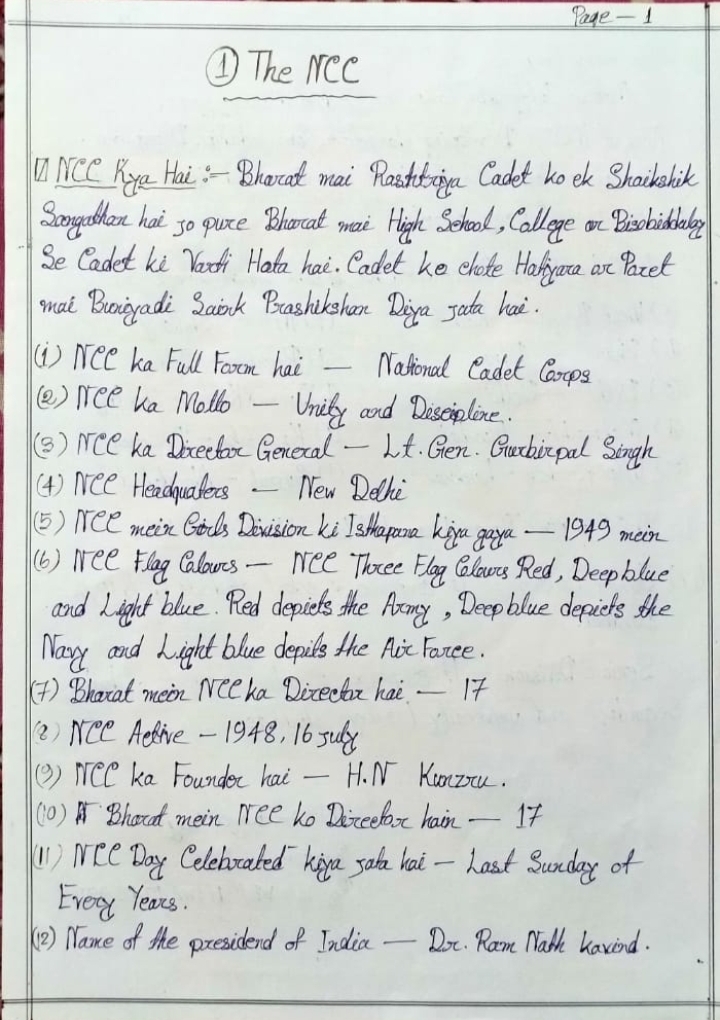 Page – 1
① The NCC
NCC Kya Hai :– Bharat mai Rashtriya Cadet ko ek Shaikshik
Sangathan hai jo pure Bharat mai High School, College or Bisobiddalay
Se Cadet ki Varti Hota hai. Cadet ko chote Hatiyara or Paret
mai Buniyadi Saink Prashikshan Diya jata hai.
(1) NCC ka Full Form hai — National Cadet Corps
(2) NCC ka Motto — Unity and Discipline.
(3) NCC ka Director General — Lt. Gen. Gurbirpal Singh
(4) NCC Headquaters — New Delhi
(5) NCC mein Girls Division ki Isthapana kiya gaya — 1949 mein
(6) NCC Flag Colours — NCC Three Flag Colours Red, Deep blue
and Light blue. Red depicts the Army, Deep blue depicts the
Navy and Light blue depits the Air Force.
(7) Bharat mein NCC ka Director hai — 17
(8) NCC Active – 1948, 16 july
(9) NCC ka Founder hai — H.N Kunzru.
(10) Bharat mein NCC ko Director hain — 17
(11) NCC Day Celebrated kiya jata hai – Last Sunday of
Every Years.
(12) Name of the presidend of India — Dr. Ram Nath kovind.